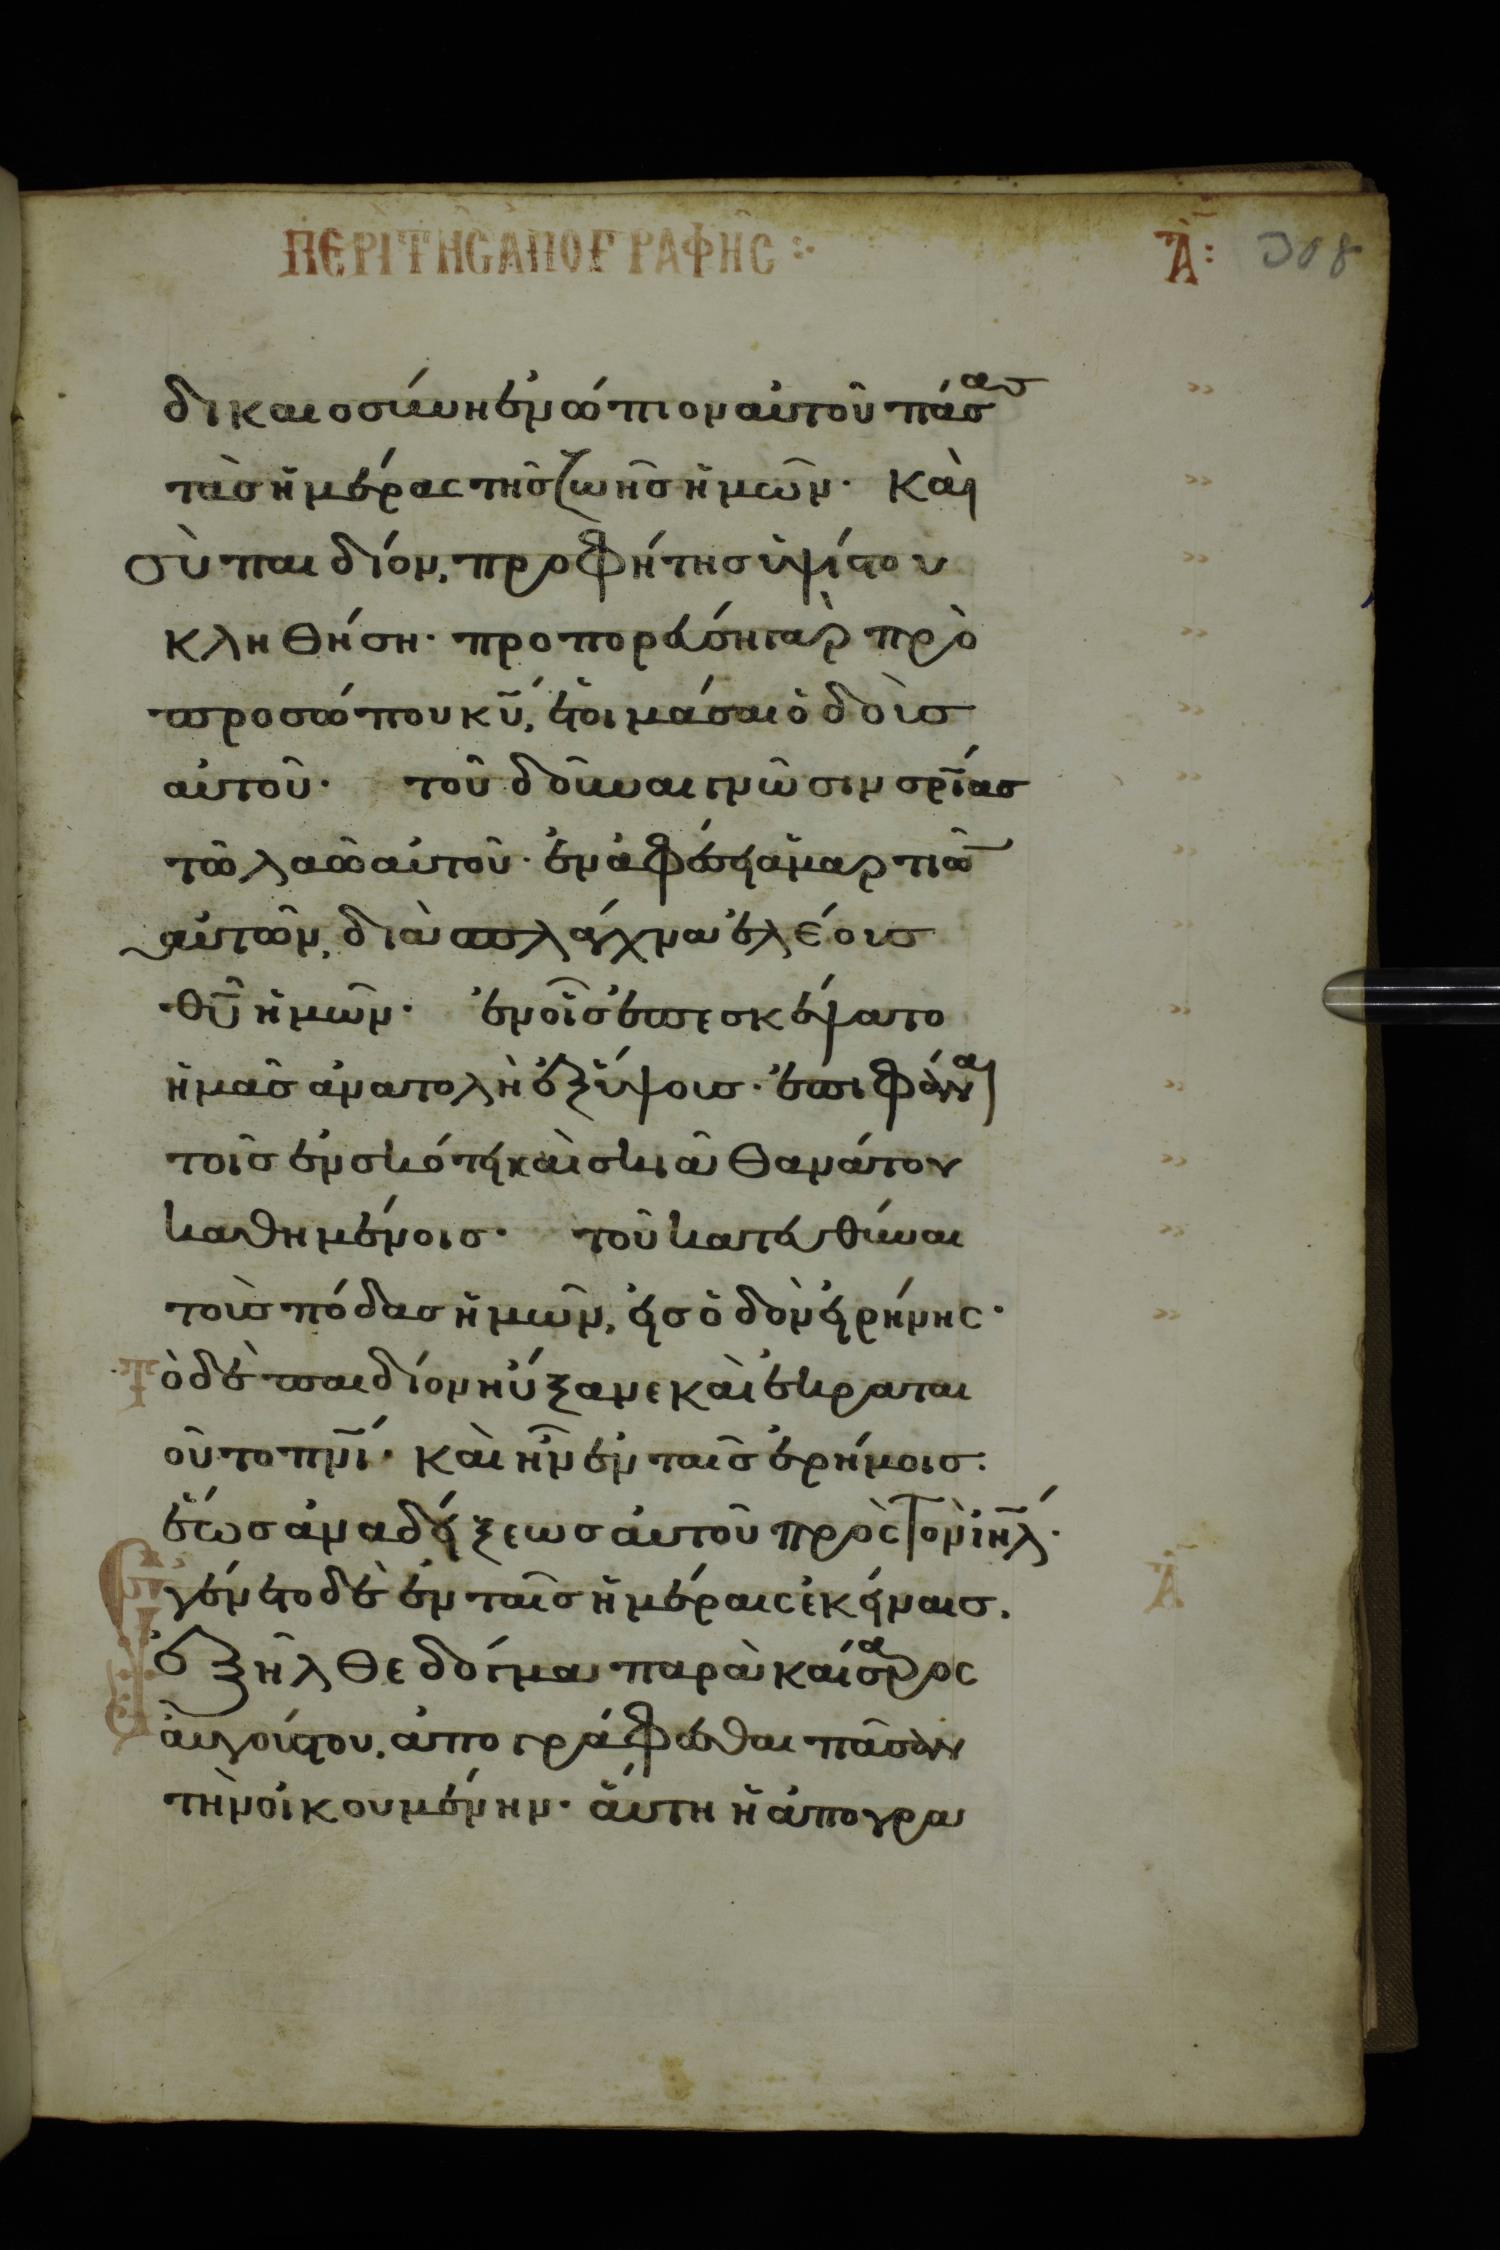 ΠΕΡῚ ΤΗ͂Σ ἈΠΟΓΡΑΦΗ͂Σ :· Α̅: 308
δικαιοσύνη ἐνώπιον αὐτοῦ πάσας
τὰς ἡμέρας τῆς ζωῆς ἡμῶν· Καὶ
σὺ παιδίον, προφήτης ὑψίστου
κληθήση· προπορεύση γαρ πρὸ
προσώπου κ̅υ̅, ἑτοιμάσαι ὁδοὺς
αὐτοῦ· τοῦ δοῦναι γνῶσιν σ̅ρ̅ίας
τῶ λαῶ αὐτοῦ· ἐν ἀφέσει ἁμαρτιῶ̅
αὐτῶν, διὰ σπλάγχνα ἐλέους
θ̅υ̅ ἡμῶν· ἐν οἷς ἐπεσκέψατο
ἡμᾶς ἀνατολὴ ἐξ ὕψους· ἐπιφάναι
τοῖς ἐν σκότει καὶ σκιᾶ θανάτου
καθημένοις· τοῦ κατευθῦναι
τοὺς πόδας ἡμῶν, εἰς ὁδὸν εἰρήνης·
Τὸ δὲ παιδίον ηὔξανε καὶ ἐκραται
οῦτο π̅ν̅ι· καὶ ἦν ἐν ταῖς ἐρήμοις·
ἕως ἀναδείξεως αὐτοῦ πρὸς τὸν ἰ̅η̅λ̅·
Ἐγένετο δὲ ἐν ταῖς ἡμέραις ἐκείναις. Α̅
ἐξῆλθε δόγμα παρὰ καίσαρος
αὐγούστου, ἀπογράφεσθαι πᾶσαν
τὴν οἰκουμένην· ἅυτη ἡ ἀπογρα